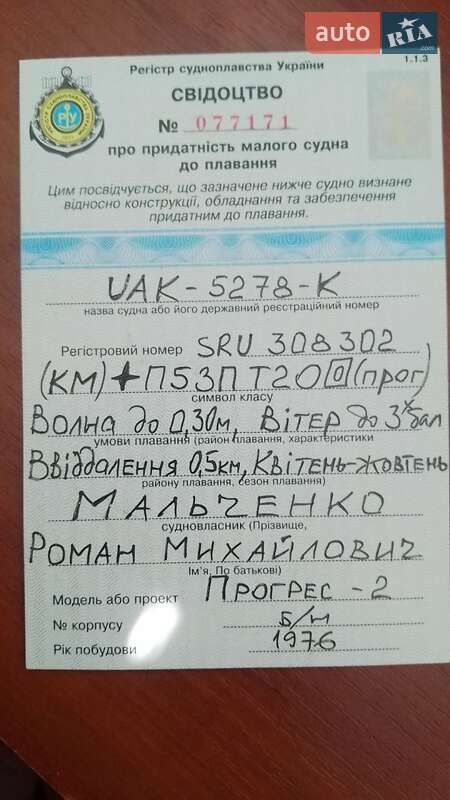 auto RIA .com
1.1.3
Регістр судноплавства України
СВІДОЦТВО
№ 077171
про придатність малого судна
до плавання
Цим посвідчується, що зазначене нижче судно визнане
відносно конструкції, обладнання та забезпечення
придатним до плавання.
UAK-5278-K
назва судна або його державний реєстраційний номер
Регістровий номер SRU 308302
(КМ)+П53П Т20 0 (прог)
символ класу
Волна до 0,30м, Вітер до 3х бал
умови плавання (район плавання, характеристики
Ввіддалення 0,5км, Квітень-Жовтень
району плавання, сезон плавання)
Мальченко
судновласник (Прізвище,
Роман Михайлович
Ім'я, По батькові)
Модель або проект Прогрес -2
№ корпусу Б/н
Рік побудови 1976